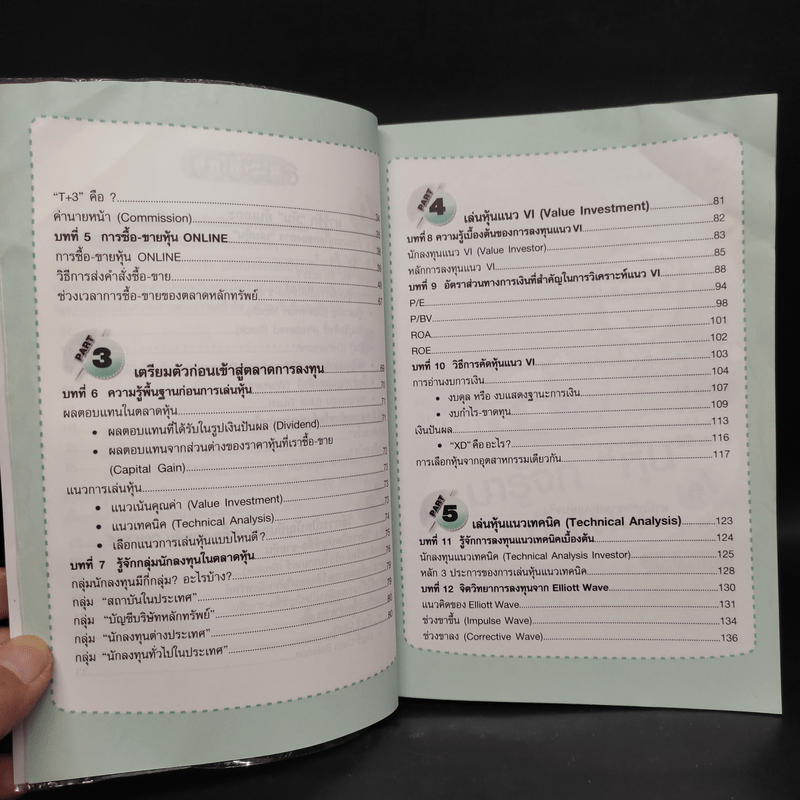 "T+3" คือ ?
ค่านายหน้า (Commission) 34
บทที่ 5 การซื้อ-ขายหุ้น ONLINE
การซื้อ-ขายหุ้น ONLINE
วิธีการส่งคำสั่งซื้อ-ขาย
ช่วงเวลาการซื้อ-ขายของตลาดหลักทรัพย์
PART 3
เตรียมตัวก่อนเข้าสู่ตลาดการลงทุน 69
บทที่ 6 ความรู้พื้นฐานก่อนการเล่นหุ้น 70
ผลตอบแทนในตลาดหุ้น 71
• ผลตอบแทนที่ได้รับในรูปเงินปันผล (Dividend) 71
• ผลตอบแทนจากส่วนต่างของราคาหุ้นที่เราซื้อ-ขาย
(Capital Gain) 72
แนวการเล่นหุ้น 73
• แนวเน้นคุณค่า (Value Investment) 73
• แนวเทคนิค (Technical Analysis) 74
• เลือกแนวการเล่นหุ้นแบบไหนดี?
บทที่ 7 รู้จักกลุ่มนักลงทุนในตลาดหุ้น
กลุ่มนักลงทุนมีกี่กลุ่ม? อะไรบ้าง?
กลุ่ม "สถาบันในประเทศ"
กลุ่ม "บัญชีบริษัทหลักทรัพย์"
กลุ่ม "นักลงทุนต่างประเทศ"
กลุ่ม "นักลงทุนทั่วไปในประเทศ"
PART 4
เล่นหุ้นแนว VI (Value Investment) 81
บทที่ 8 ความรู้เบื้องต้นของการลงทุนแนว VI 82
นักลงทุนแนว VI (Value Investor) 83
หลักการลงทุนแนว VI 85
บทที่ 9 อัตราส่วนทางการเงินที่สำคัญในการวิเคราะห์แนว VI 88
P/E 94
P/BV 98
ROA 101
ROE 102
บทที่ 10 วิธีการคัดหุ้นแนว VI 103
การอ่านงบการเงิน 104
• งบดุล หรือ งบแสดงฐานะการเงิน 107
• งบกำไร-ขาดทุน 109
เงินปันผล 113
• "XD" คืออะไร? 116
การเลือกหุ้นจากอุตสาหกรรมเดียวกัน 117
PART 5
เล่นหุ้นแนวเทคนิค (Technical Analysis) 123
บทที่ 11 รู้จักการลงทุนแนวเทคนิคเบื้องต้น 124
นักลงทุนแนวเทคนิค (Technical Analysis Investor) 125
หลัก 3 ประการของการเล่นหุ้นแนวเทคนิค 128
บทที่ 12 จิตวิทยาการลงทุนจาก Elliott Wave 130
แนวคิดของ Elliott Wave 131
ช่วงขาขึ้น (Impulse Wave) 134
ช่วงขาลง (Corrective Wave) 136